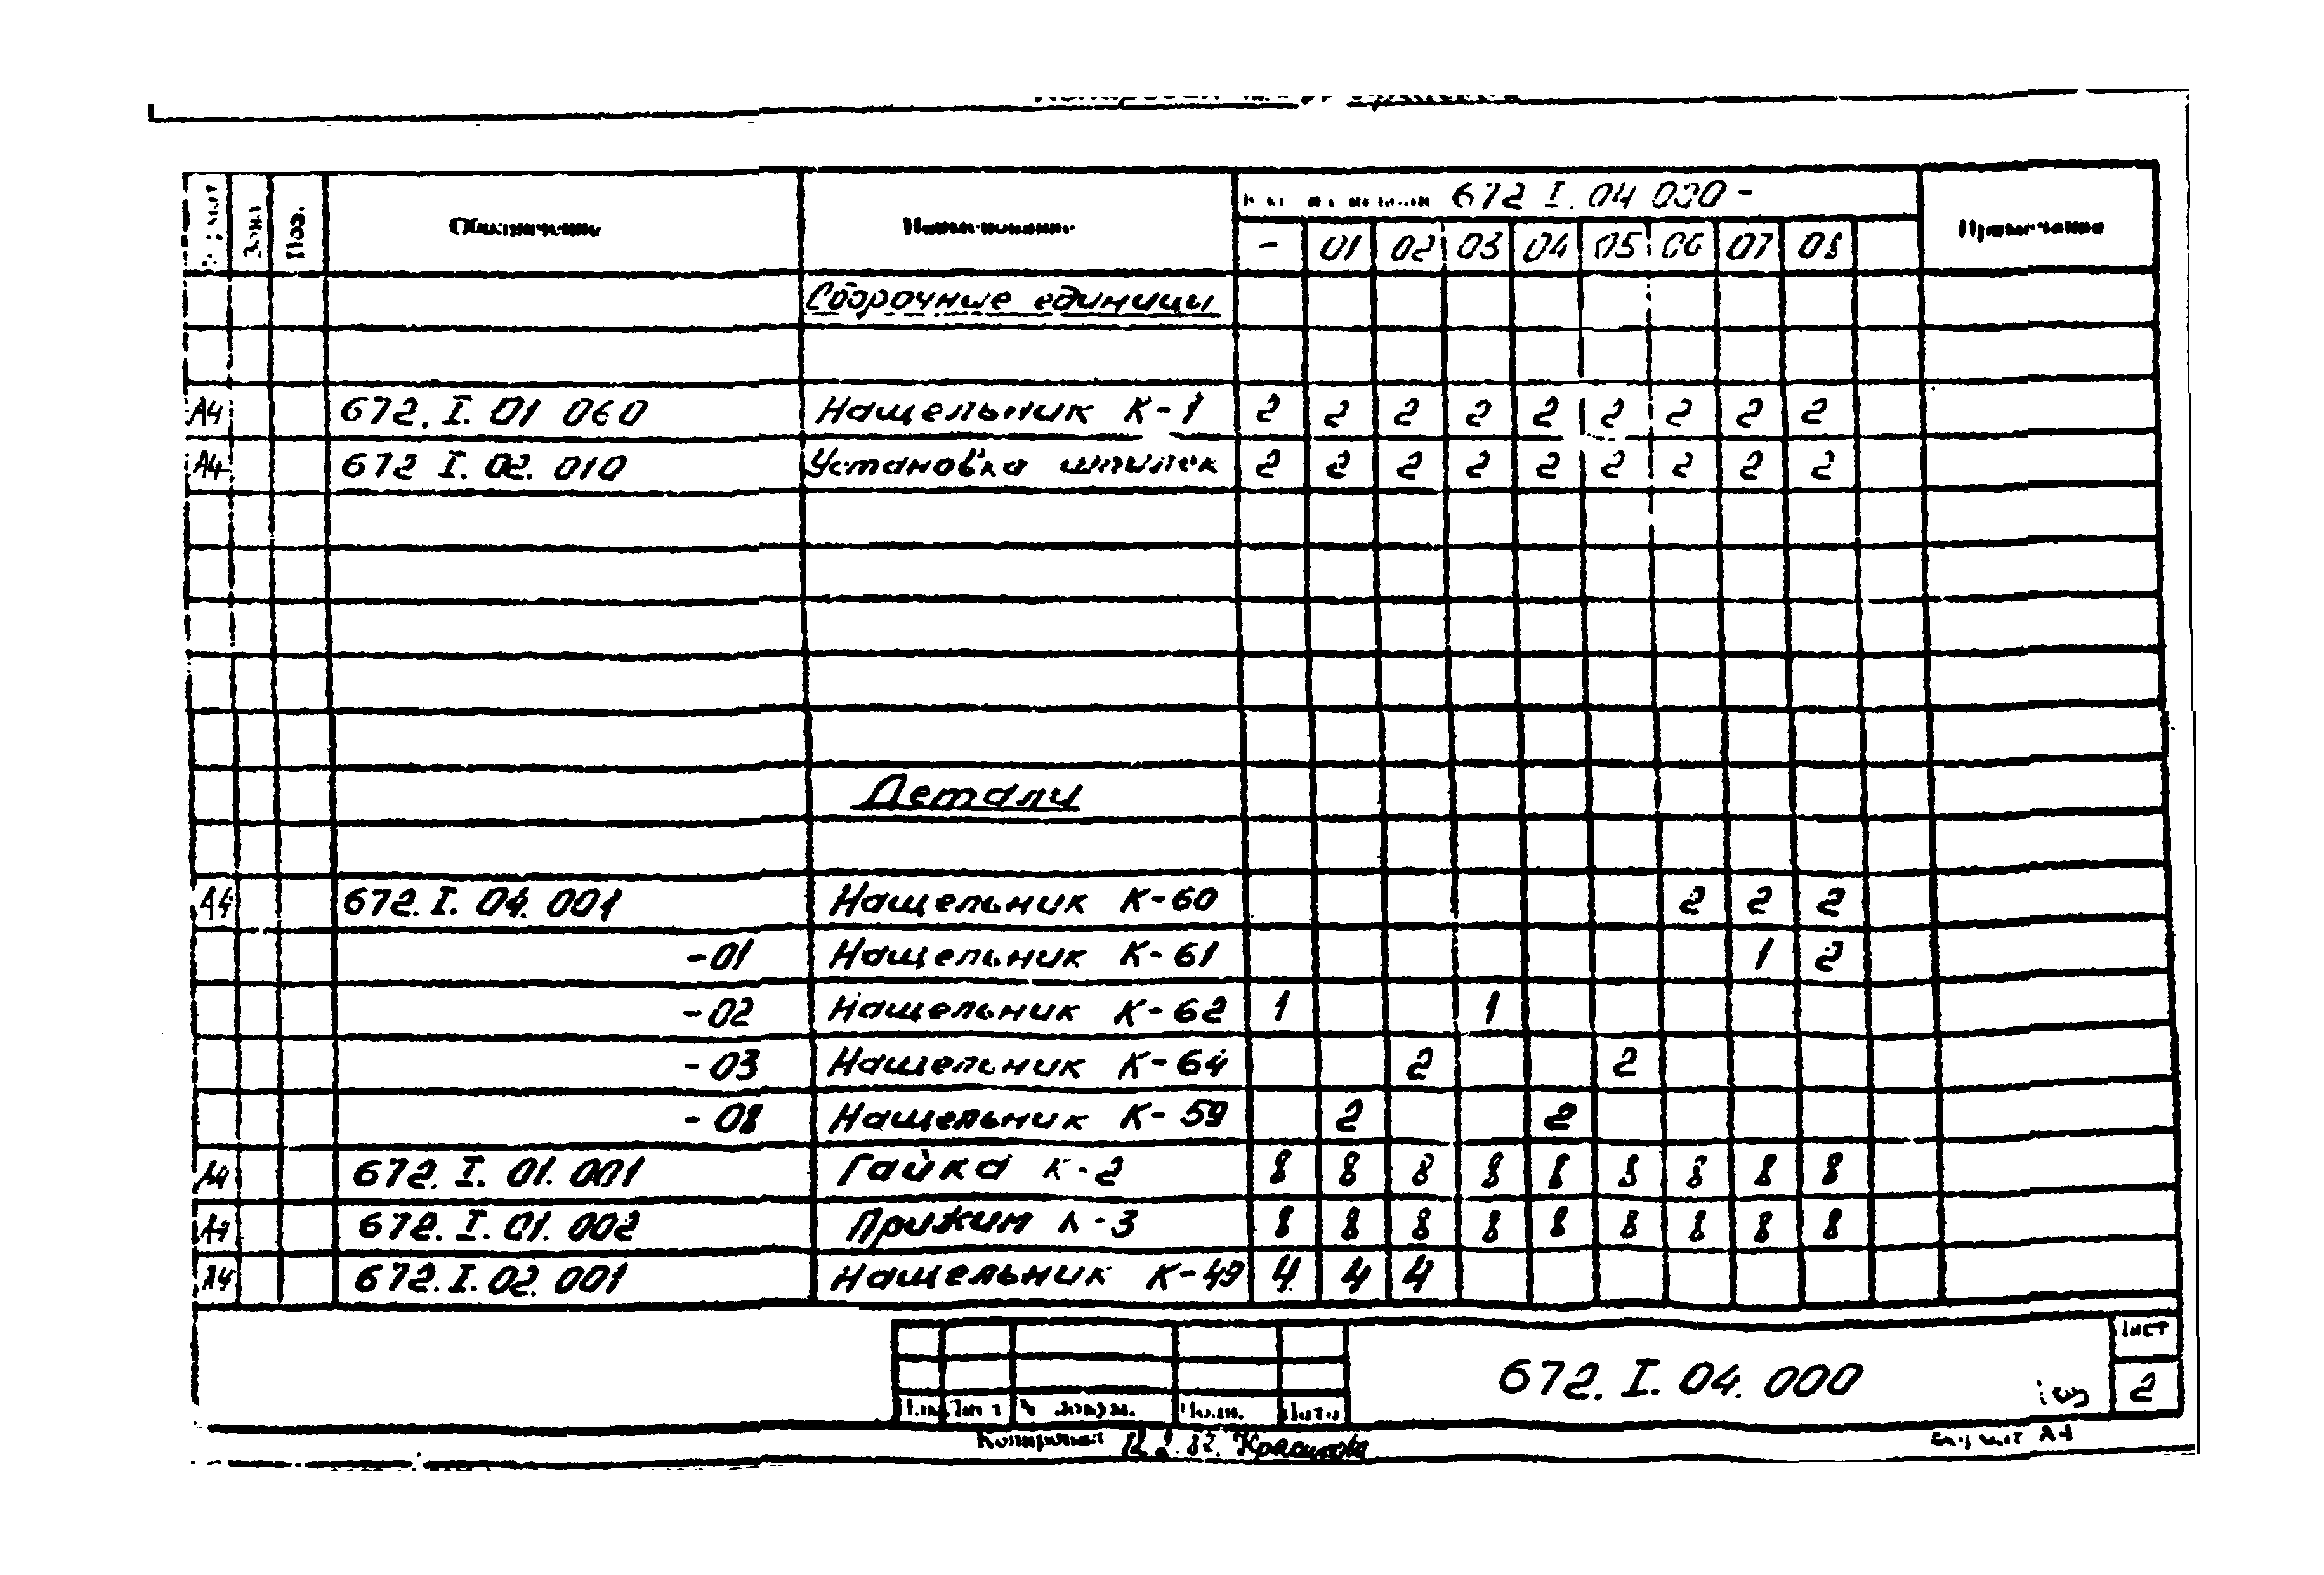 Зона Поз. Обозначение Наименование 672 I. 04 000 - Примечание
- 01 02 03 04 05 06 07 08
Сборочные единицы
А4 672. I. 01 060 Нащельник К-1 2 2 2 2 2 2 2 2 2
А4 672 I. 02. 010 Установка шпилек 2 2 2 2 2 2 2 2 2
Детали
А4 672. I. 04. 001 Нащельник К-60 2 2 2
-01 Нащельник К-61 1 2
-02 Нащельник К-62 1 1
-03 Нащельник К-64 2 2
-08 Нащельник К-59 2 2
А4 672. I. 01. 001 Гайка К-2 8 8 8 8 8 8 8 8 8
А4 672. I. 01. 002 Прижим К-3 8 8 8 8 8 8 8 8 8
А4 672. I. 02. 001 Нащельник К-49 4 4 4
672. I. 04. 000
Лист
2
Изм. Лист № докум. Подп. Дата
Копировал
Формат А4